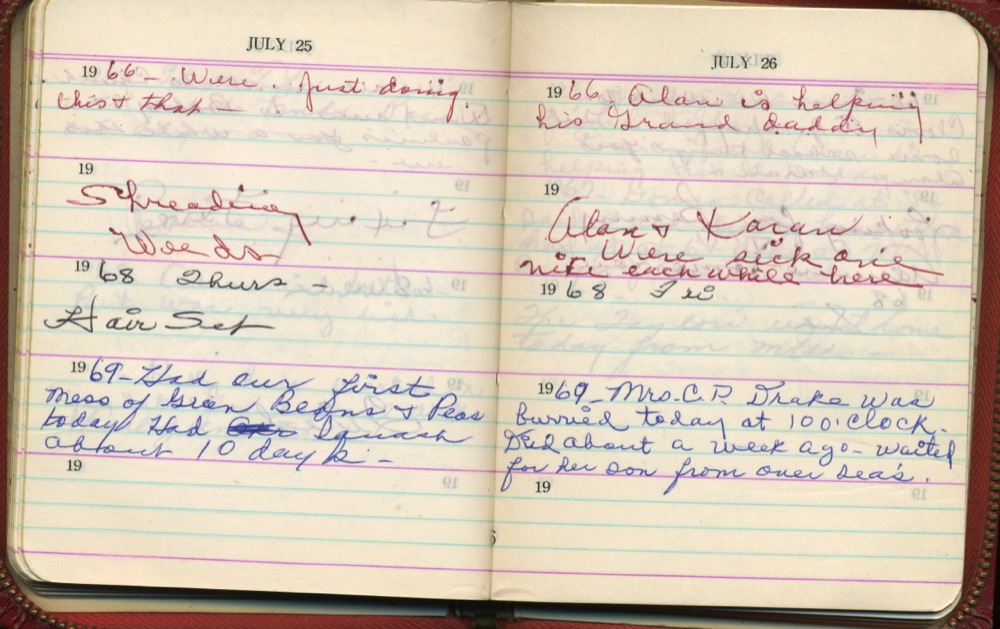 JULY 25
1966 - Were. Just doing.
this & that
19
Shreading
Weeds
1968 Thurs -
Hair Set
1969 - Had our first
mess of Green Beans & Peas
today Had Squash
about 10 days -
19
JULY 26
1966. Alan is helping
his Grand daddy
19
Alan & Karan
Were sick one
nite each while here
1968 Fri
1969 - Mrs. C. P. Drake was
burried today at 10 O'Clock.
Died about a week ago - waited
for her son from over sea's.
19